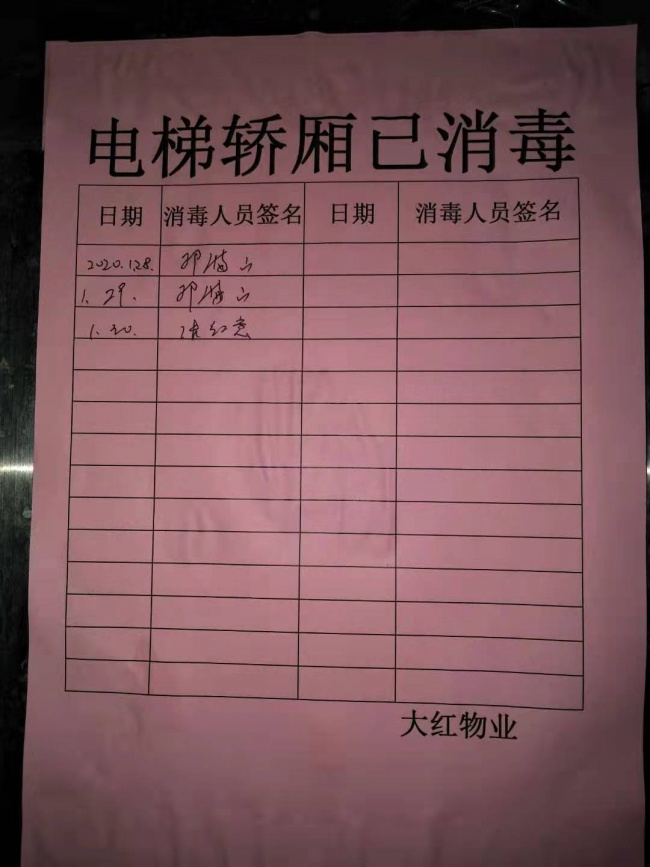 电梯轿厢已消毒
日期 消毒人员签名 日期 消毒人员签名
2020.1.28.
1.29.
1.30.
大红物业